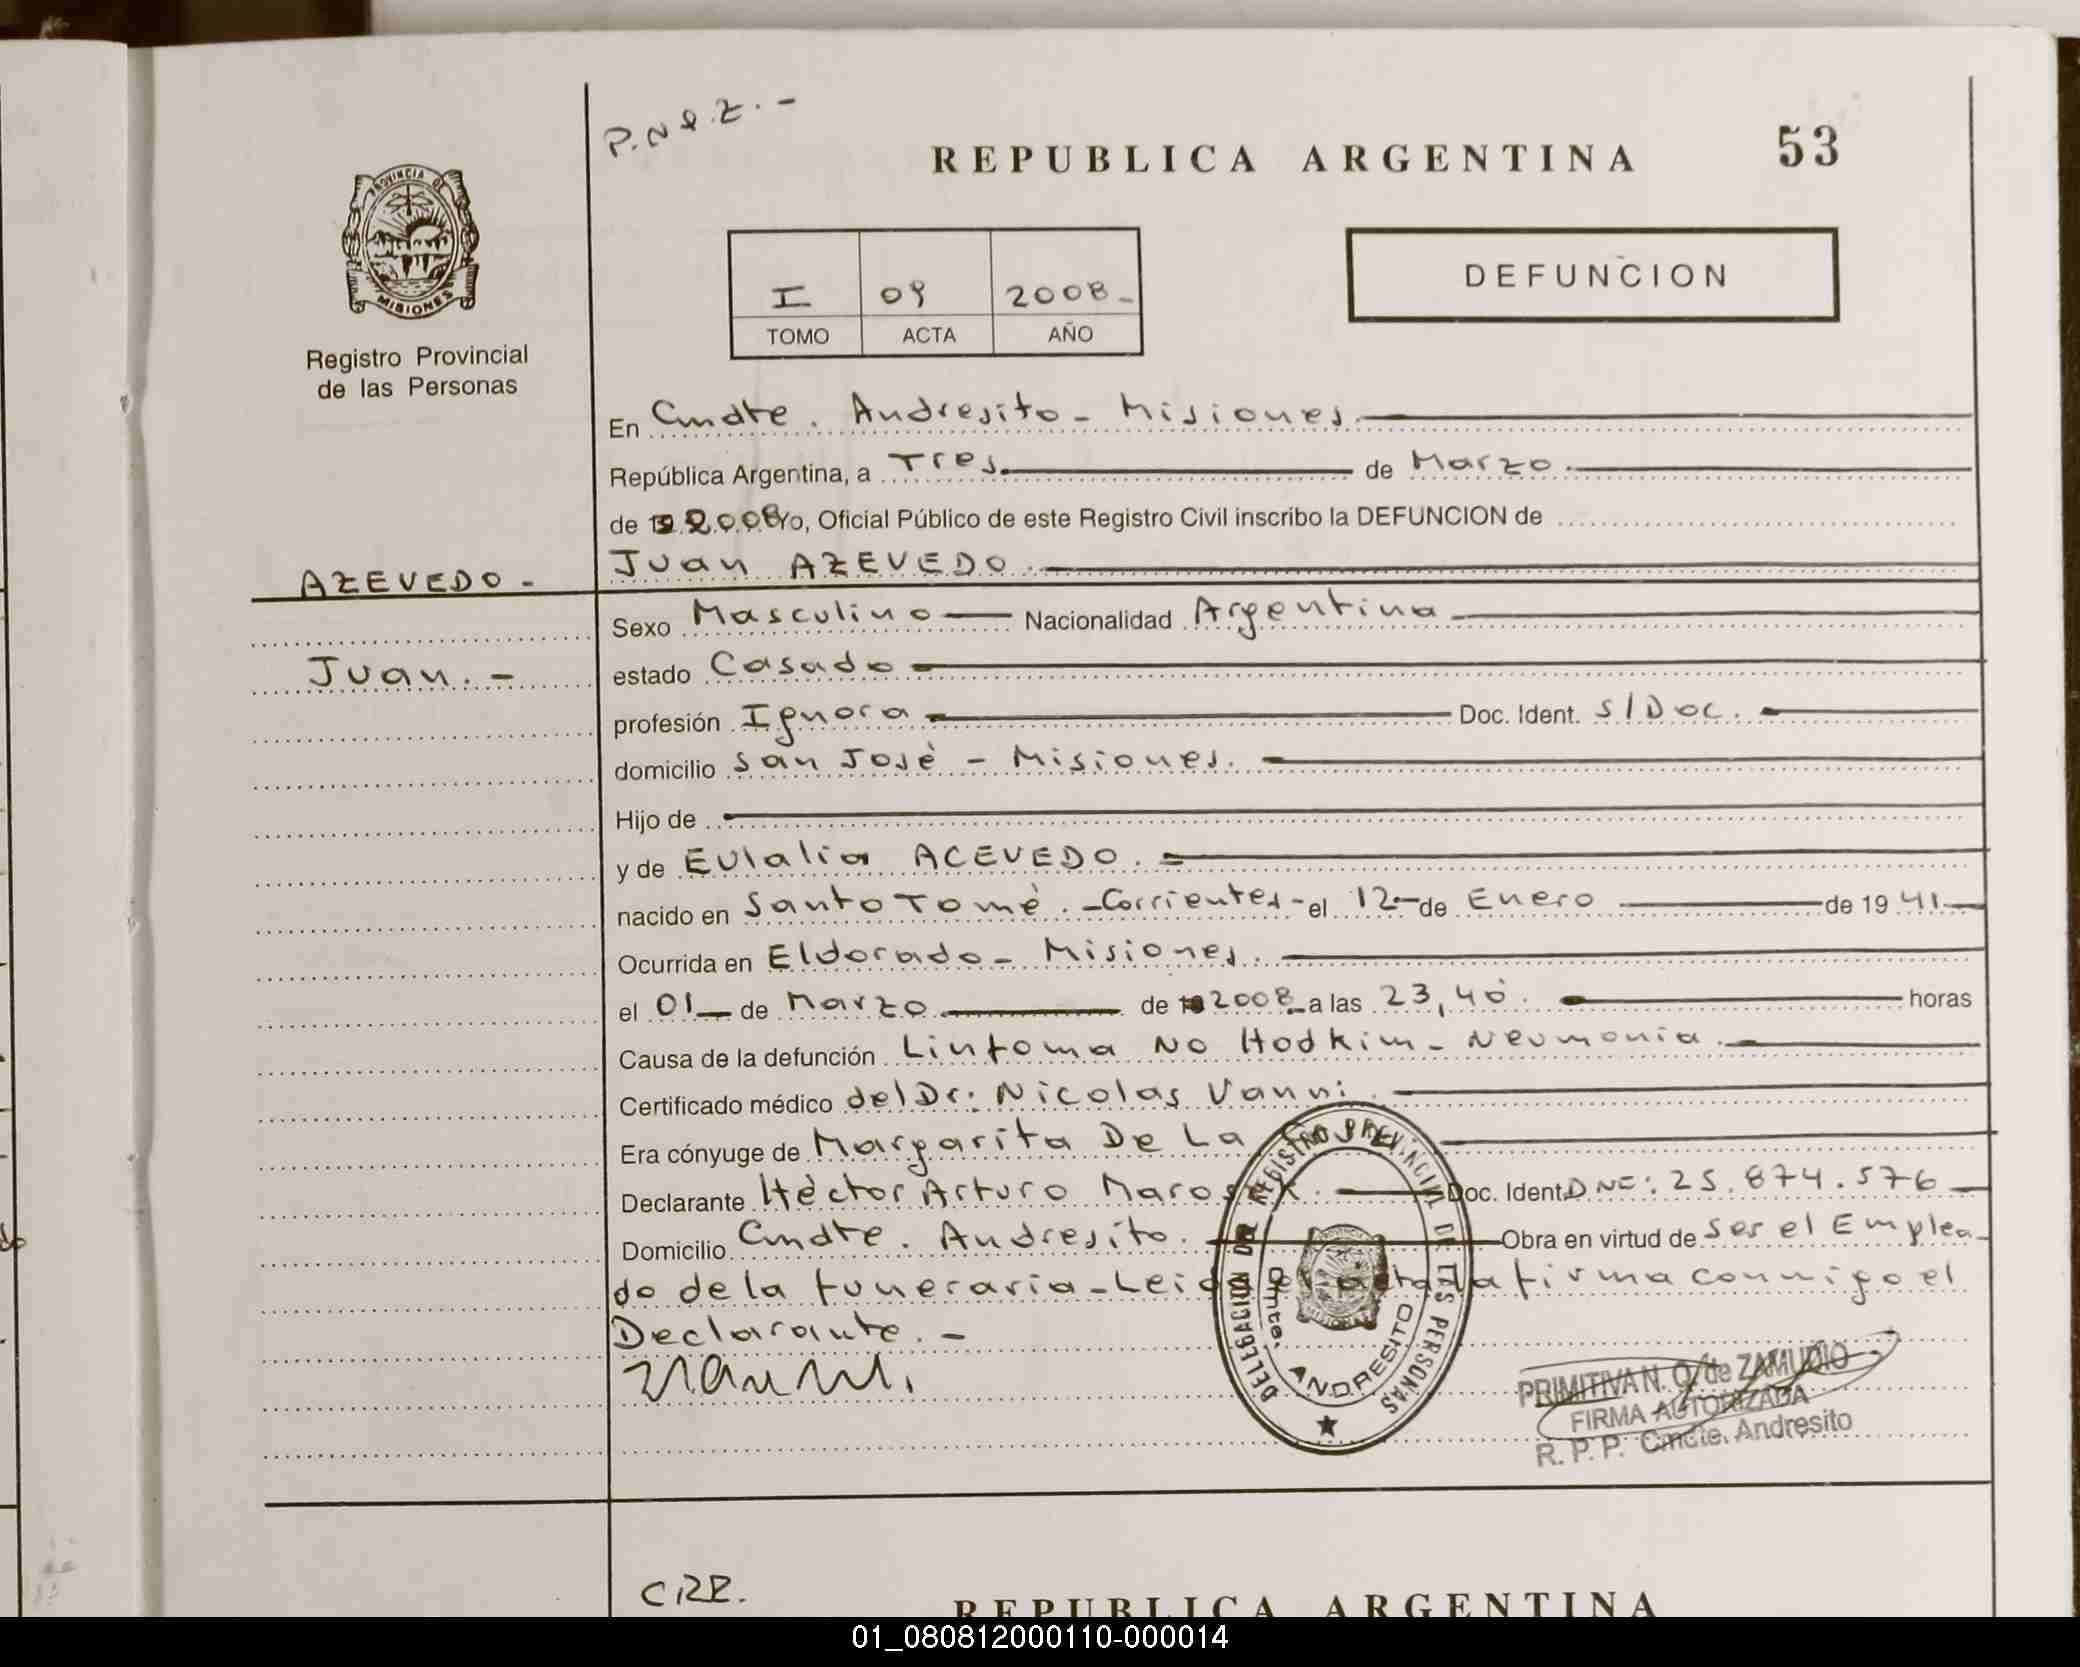 P.N.Q.Z.-
REPUBLICA ARGENTINA 53
PROVINCIA DE
MISIONES
Registro Provincial
de las Personas
I 09 2008-
TOMO ACTA AÑO
DEFUNCION
En Cmdte. Andresito - Misiones.
República Argentina, a Tres. de Marzo.
de 2008 Yo, Oficial Público de este Registro Civil inscribo la DEFUNCION de
Juan AZEVEDO.
AZEVEDO -
Juan. -
Sexo Masculino Nacionalidad Argentina
estado Casado
profesión Ignora Doc. Ident. S/Doc.
domicilio San José - Misiones.
Hijo de
y de Eulalia ACEVEDO. =
nacido en Santo Tomé. - Corrientes - el 12 - de Enero de 19 41
Ocurrida en Eldorado - Misiones.
el 01 de Marzo de 2008 a las 23,40. horas
Causa de la defunción Linfoma No Hodkim - Neumonia.
Certificado médico del Dr: Nicolas Vanni.
Era cónyuge de Margarita De La
Declarante Héctor Arturo Doc. Ident. DNI: 25.874.576
Domicilio Cmdte. Andresito. Obra en virtud de ser el Emplea-
do de la funeraria - Leida el acta la firma conmigo el
Declarante. -
DELEGACION DEL REGISTRO PROVINCIAL DE LAS PERSONAS
Cmte. ANDRESITO
PRIMITIVA N. Q. de ZAMUDIO
FIRMA AUTORIZADA
R. P. P. Cmdte. Andresito
CRE.
REPUBLICA ARGENTINA
01_080812000110-000014